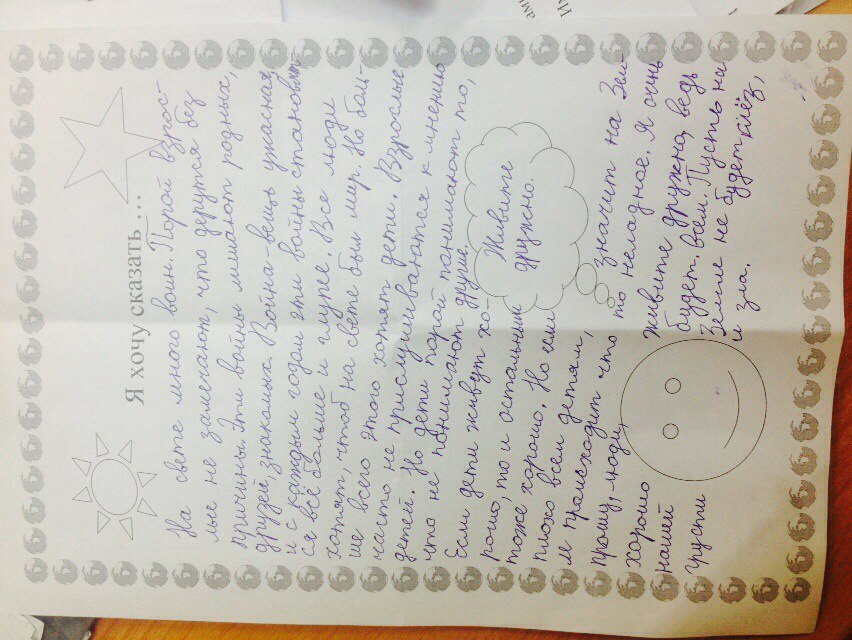 Я хочу сказать ...
На свете много воин. Порой взрос-
лые не замечают, что дерутся без
причины. Эти войны лишают родных,
друзей, знакомых. Война-вещь ужасная,
и с каждым годом эти войны становит-
ся всё больше и глупее. Все люди
хотят, чтоб на свете был мир. Но боль-
ше всего этого хотят дети. Взрослые
часто не прислушиваются к мнению
детей. Но дети порой понимают то,
что не понимают другие.
Если дети живут хо-
рошо, то и остальным
тоже хорошо. Но если
Живите
дружно.
плохо всем детям, значит на Зем-
ле происходит что то неладное. Я очень
прошу, люди, живите дружно, ведь
хорошо будет всем. Пусть на
нашей Земле не будет слёз,
грусти и зла.